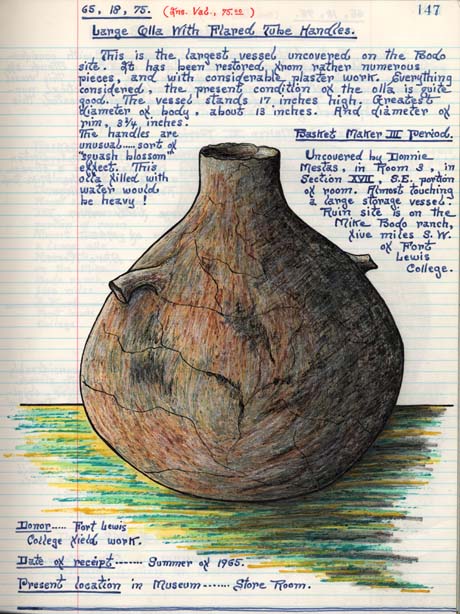 65, 18, 75. (Ins. Val., 75.00)
147
Large Olla With Flared Tube Handles.
This is the largest vessel uncovered on the Bodo
site. It has been restored from rather numerous
pieces, and with considerable plaster work. Everything
considered, the present condition of the olla is quite
good. The vessel stands 17 inches high. Greatest
diameter of body, about 13 inches. And diameter of
rim, 3 3/4 inches.
The handles are
unusual.....sort of
"squash blossom"
effect. This
olla filled with
water would
be heavy!
Basket Maker III Period.
Uncovered by Donnie
Mestas, in Room 3, in
Section XVII, S.E. portion
of room. Almost touching
a large storage vessel.
Ruin site is on the
Mike Bodo ranch,
five miles S.W.
of Fort
Lewis
College.
Donor..... Fort Lewis
College field work.
Date of receipt------- Summer of 1965.
Present location in Museum------- Store Room.